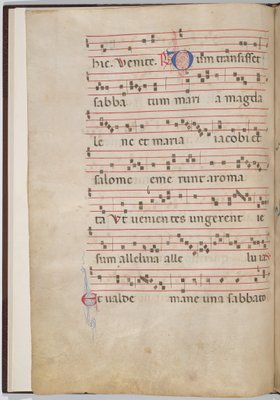 hic. Venite. Dum transisset
sabba tum mari a magda
le ne et maria iacobi et
salome eme runt aroma
ta Ut venientes ungerent ie
sum alleluia alle lu ia
Et valde mane una sabbato